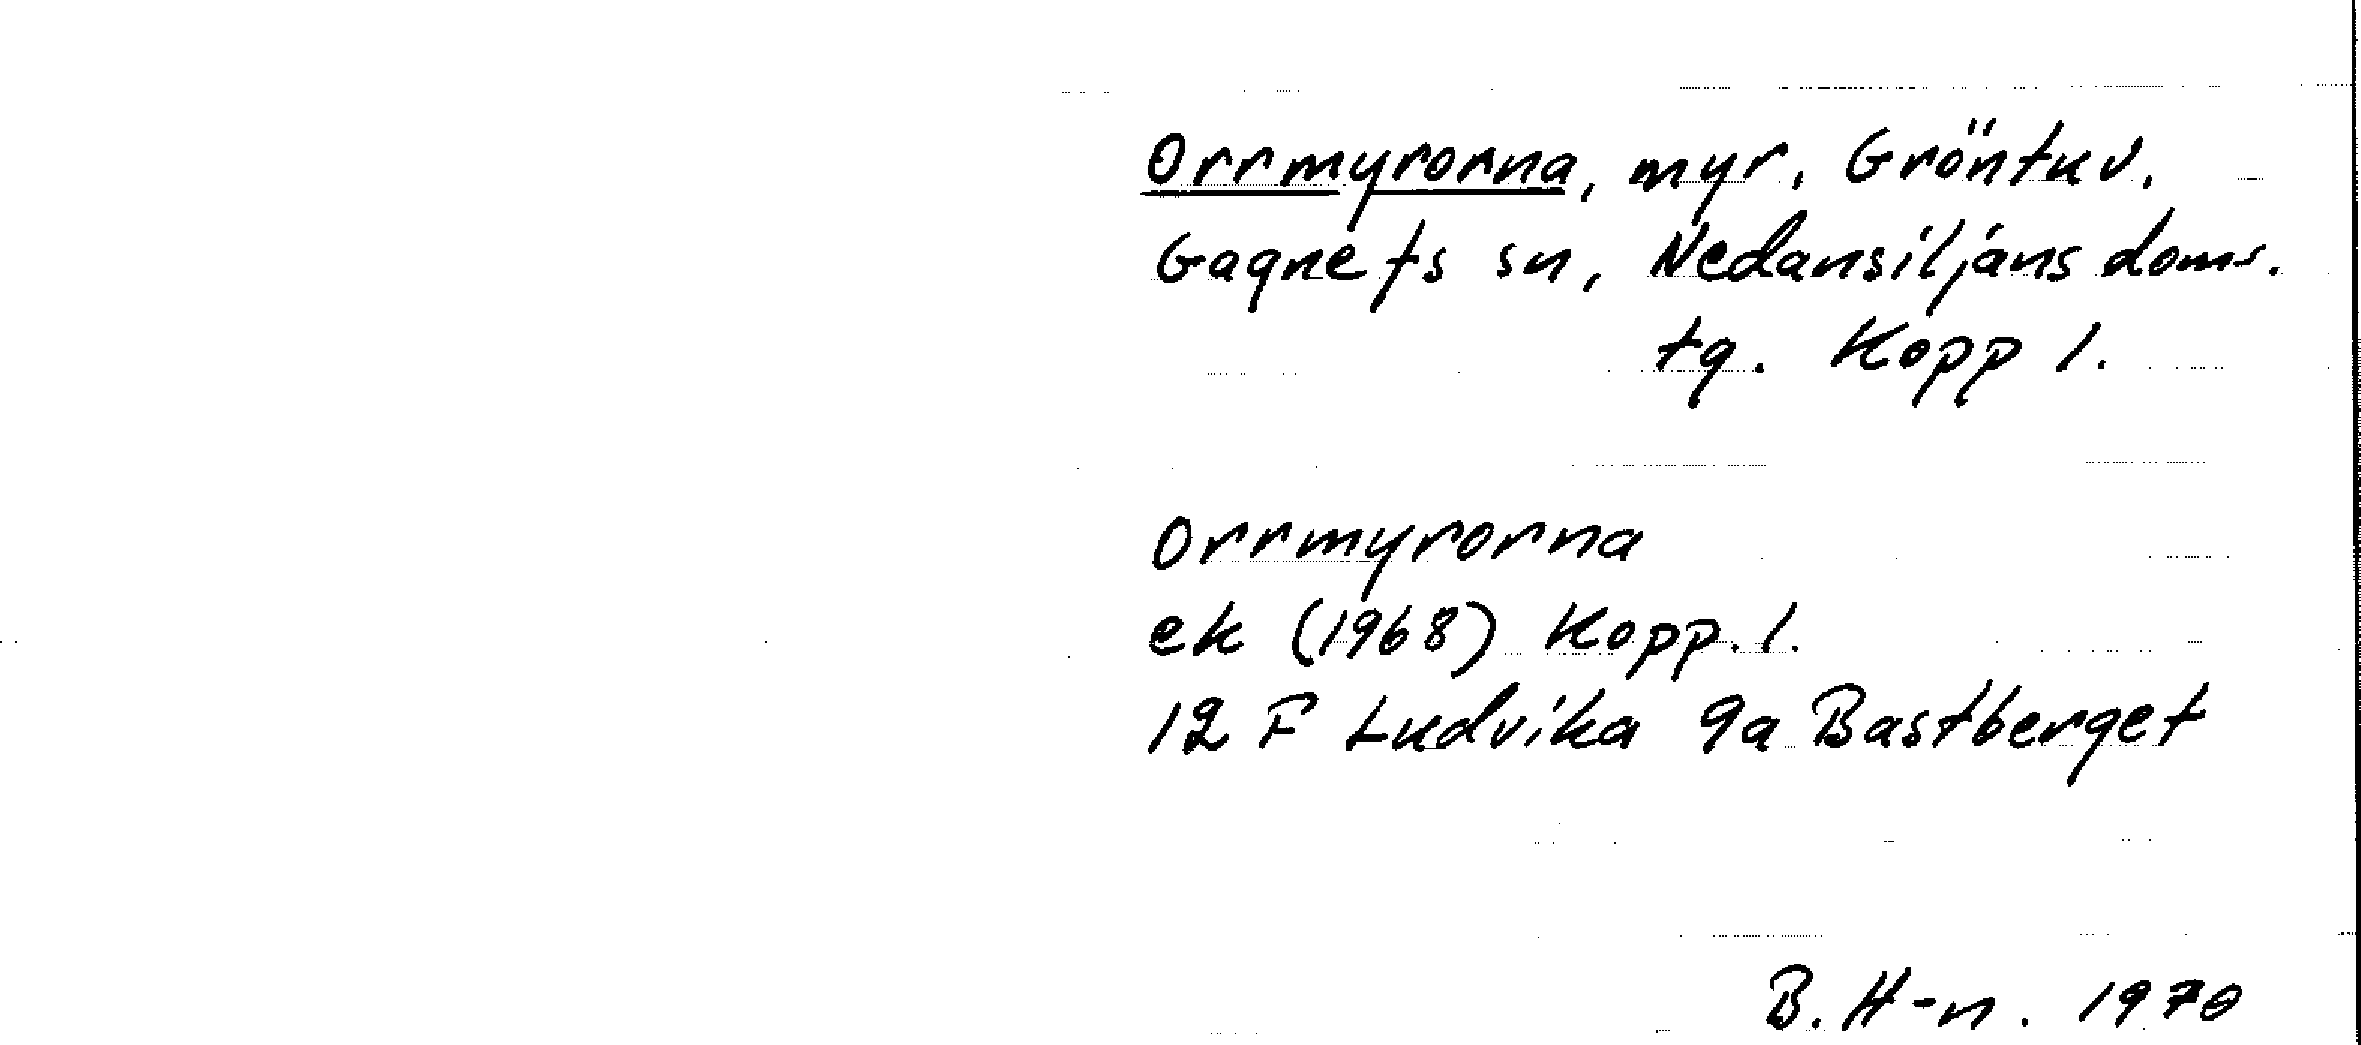 Orrmyrorna, myr, Gröntuv.
Gagnefs sn, Nedansiljans doms.
tg. Kopp l.
Orrmyrorna
ek (1968) Kopp. l.
12 F Ludvika 9a Bastberget
B. H-n. 1970